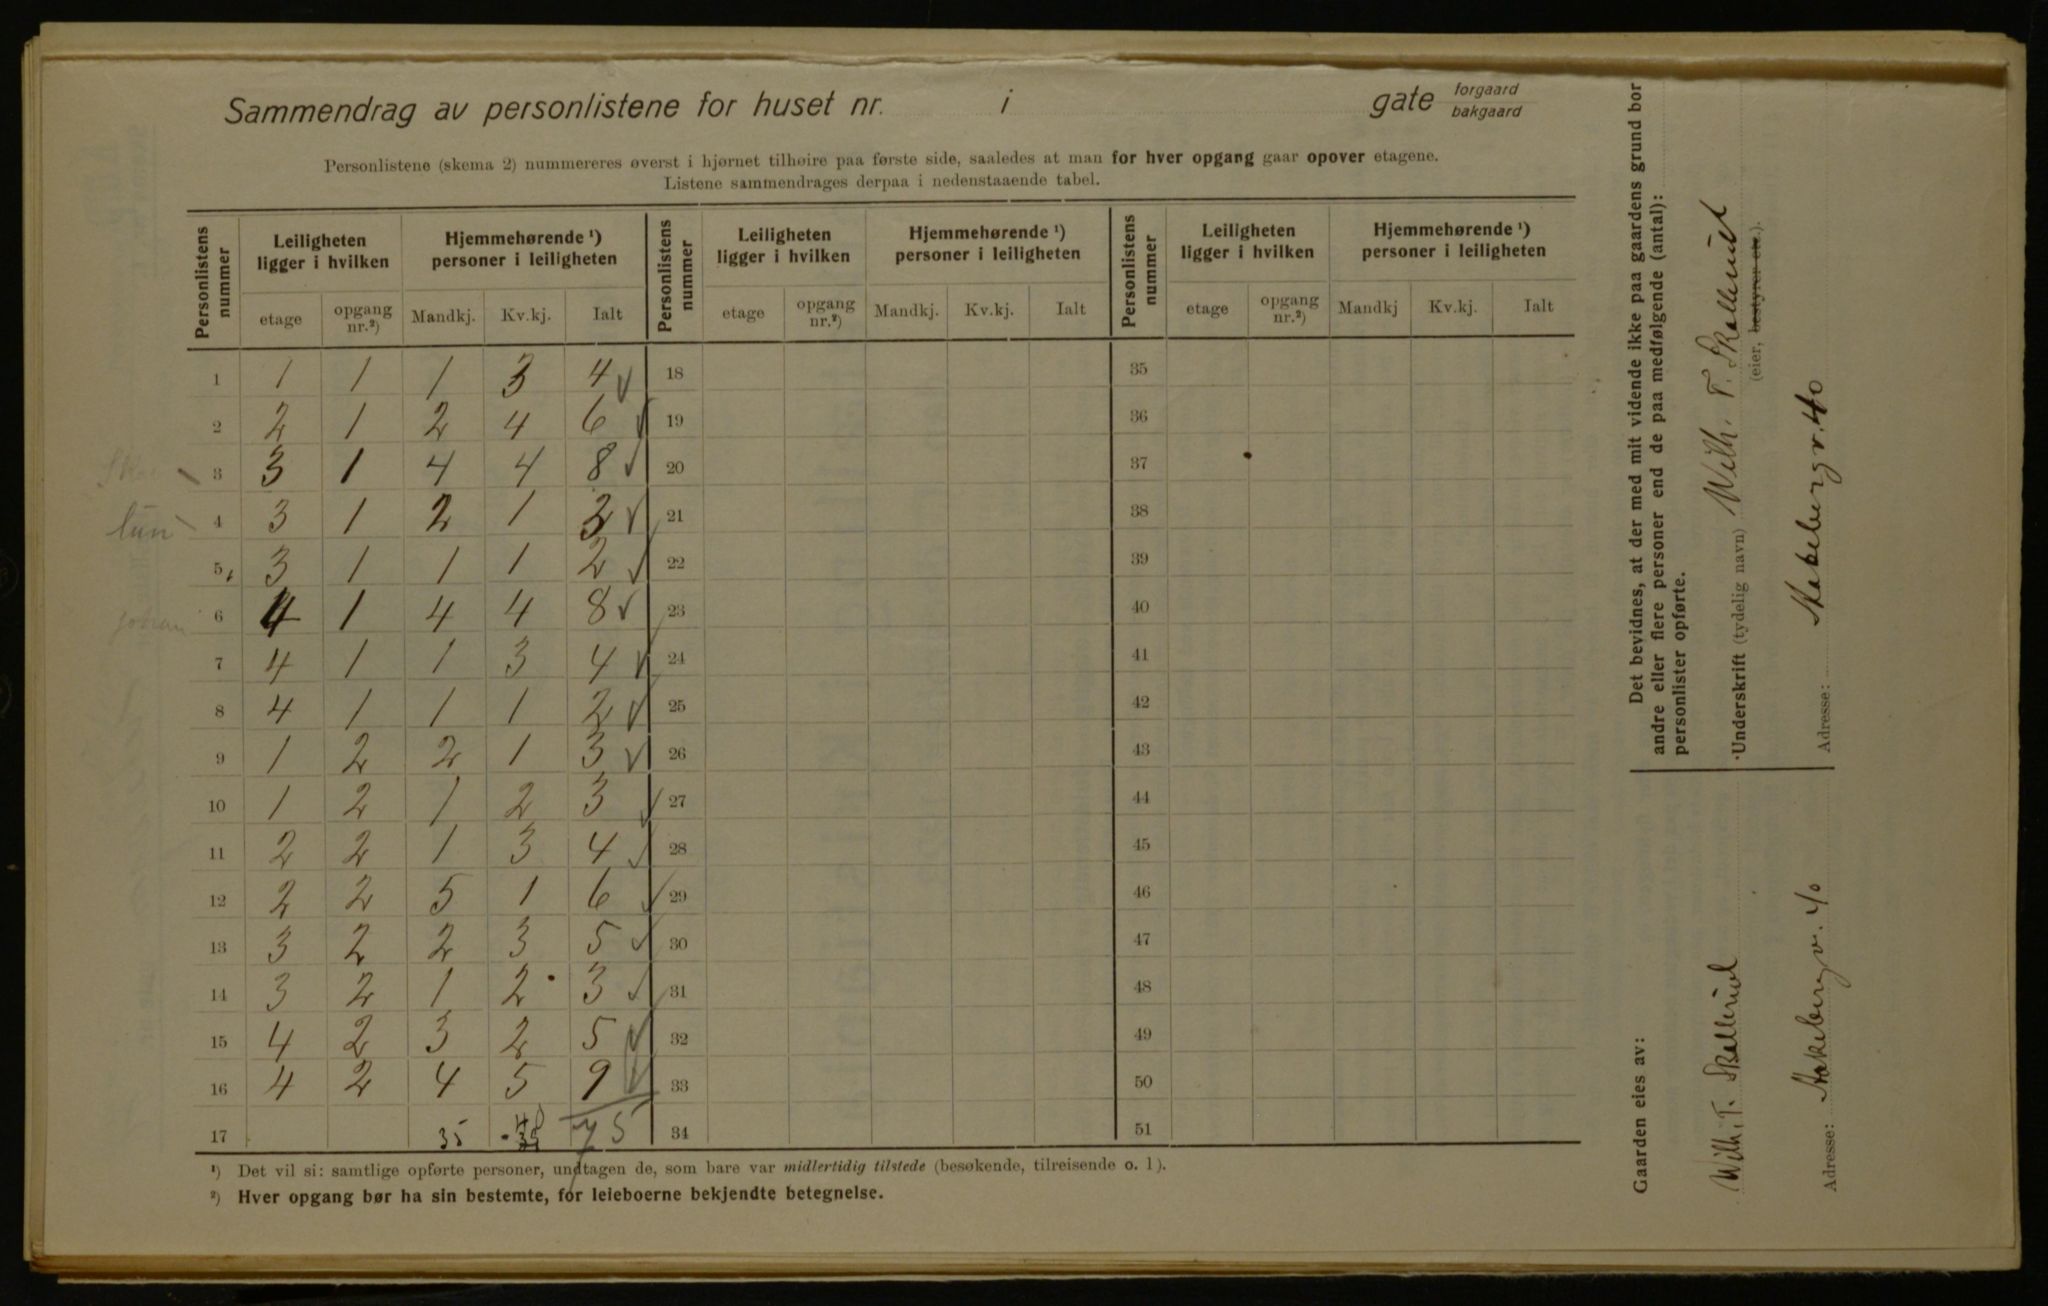 Sammendrag av personlistene for huset nr. i gate forgaard bakgaard
Personlistene (skema 2) nummereres øverst i hjørnet tilhøire paa første side, saaledes at man for hver opgang gaar opover etagene.
Listene sammendrages derpaa i nedenstaaende tabel.
Personlistens nummer | Leiligheten ligger i hvilken | Hjemmehørende ¹) personer i leiligheten | Personlistens nummer | Leiligheten ligger i hvilken | Hjemmehørende ¹) personer i leiligheten | Personlistens nummer | Leiligheten ligger i hvilken | Hjemmehørende ¹) personer i leiligheten
etage | opgang nr.²) | Mandkj. | Kv.kj. | Ialt | etage | opgang nr.²) | Mandkj. | Kv.kj. | Ialt | etage | opgang nr.²) | Mandkj | Kv.kj. | Ialt
1 1 1 1 3 4 18 35
2 2 1 2 4 6 19 36
3 3 1 4 4 8 20 37
lun 4 3 1 2 1 3 21 38
5 3 1 1 1 2 22 39
johan 6 4 1 4 4 8 23 40
7 4 1 1 3 4 24 41
8 4 1 1 1 2 25 42
9 1 2 2 1 3 26 43
10 1 2 1 2 3 27 44
11 2 2 1 3 4 28 45
12 2 2 5 1 6 29 46
13 3 2 2 3 5 30 47
14 3 2 1 2 3 31 48
15 4 2 3 2 5 32 49
16 4 2 4 5 9 33 50
17 35 40 75 34 51
¹) Det vil si: samtlige opførte personer, undtagen de, som bare var midlertidig tilstede (besøkende, tilreisende o. l).
²) Hver opgang bør ha sin bestemte, for leieboerne bekjendte betegnelse.
Gaarden eies av:
Wilh. T. Skallerud
Adresse: Aakebergv. 40
Det bevidnes, at der med mit vidende ikke paa gaardens grund bor
andre eller flere personer end de paa medfølgende (antal):
personlister opførte.
Underskrift (tydelig navn) Wilh. T. Skallerud
(eier, bestyrer etc.).
Adresse: Aakebergv. 40